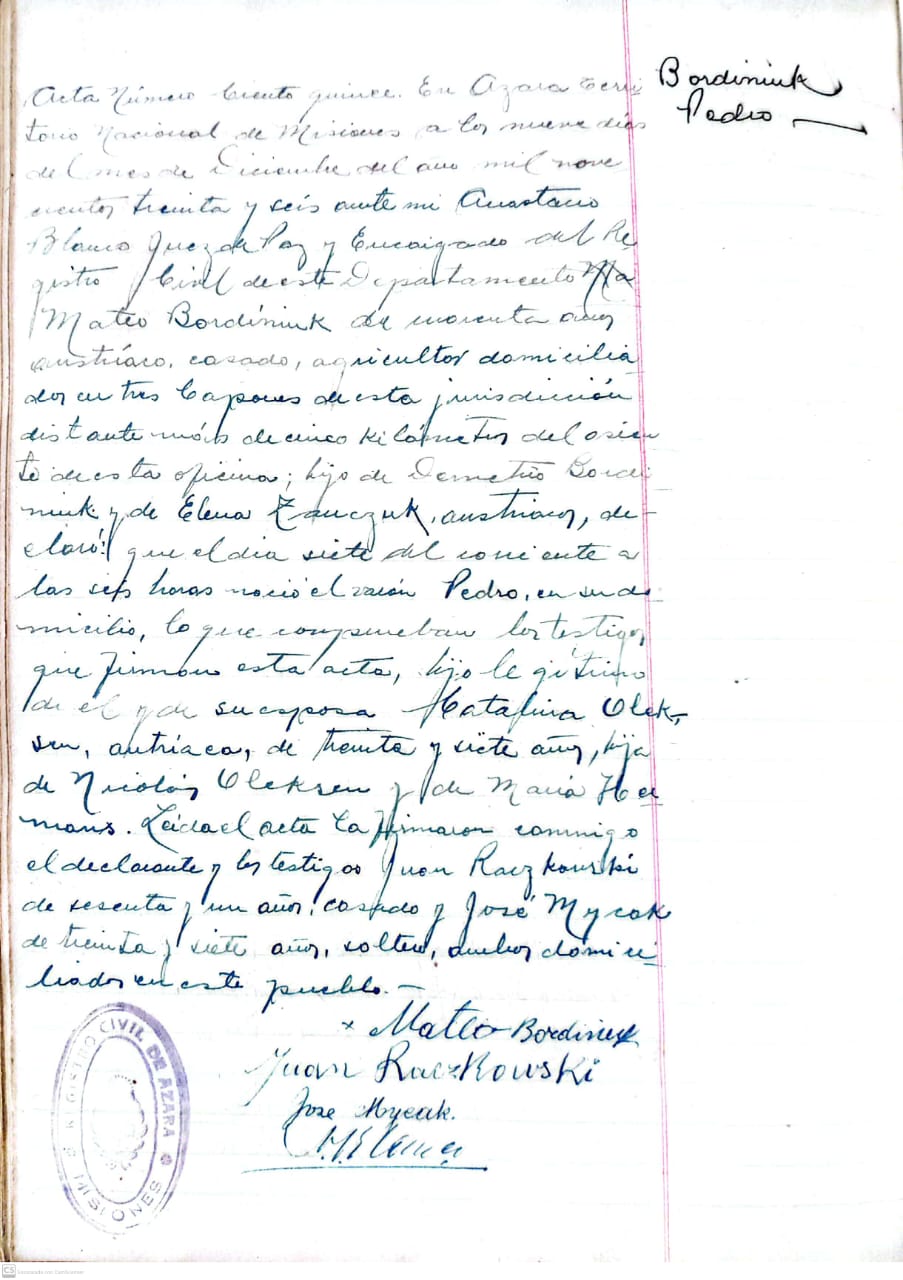 Bordiniuk
Pedro
Acta Número Ciento quince. En Azara Terri
torio Nacional de Misiones a los nueve días
del mes de Diciembre del año mil nove
cientos treinta y seis ante mi Anastacio
Blanco Juez de Paz y Encargado del Re
gistro Civil de este Departamento
Mateo Bordiniuk de cuarenta años
austríaco, casado, agricultor domicilia
dos en tres Capones de esta jurisdicción
distante más de cinco kilómetros del asien
to de esta oficina; hijo de Demetrio Bordi
niuk y de Elena Zauczuk, austriacos, de-
claró: que el dia siete del corriente a
las seis horas nació el varón Pedro, en su do-
micilio, lo que comprueban los testigos
que firman esta acta, hijo legítimo
de el y de su esposa Catalina Olek-
sen, autríaca, de treinta y siete años, hija
de Nicolás Oleksen y de María Her
mans. Leida el acta la firmaron conmigo
el declarante y los testigos Juan Raczkowski
de sesenta y un años, casado y José Mycak
de treinta y siete años, soltero, ambos domici-
liados en este pueblo.—
x Mateo Bordiniuk
Juan Raczkowski
Jose Mycak.
REGISTRO CIVIL DE AZARA
MISIONES
CS Escaneado con CamScanner